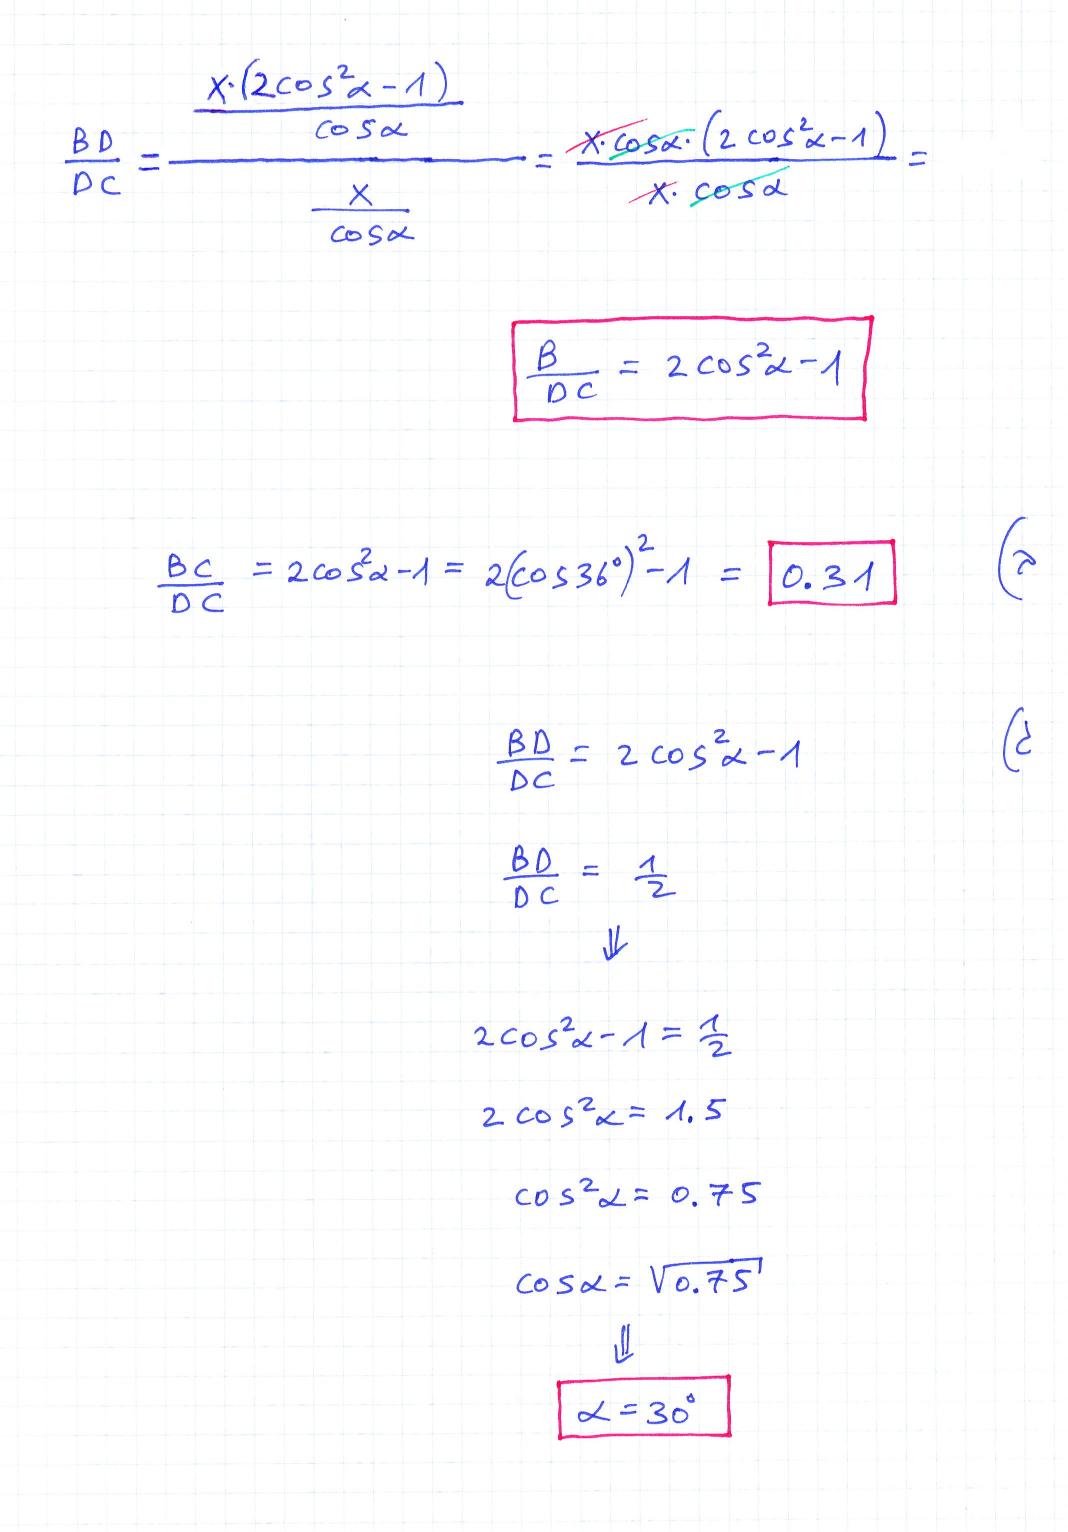 BD/DC = (x·(2cos²α-1)/cosα)/(x/cosα) = x·cosα·(2cos²α-1)/(x·cosα) =
B/DC = 2cos²α-1
BC/DC = 2cos²α-1 = 2(cos36°)²-1 = 0.31
BD/DC = 2cos²α-1
BD/DC = 1/2
⇓
2cos²α-1 = 1/2
2cos²α = 1.5
cos²α = 0.75
cosα = √0.75
⇓
α = 30°